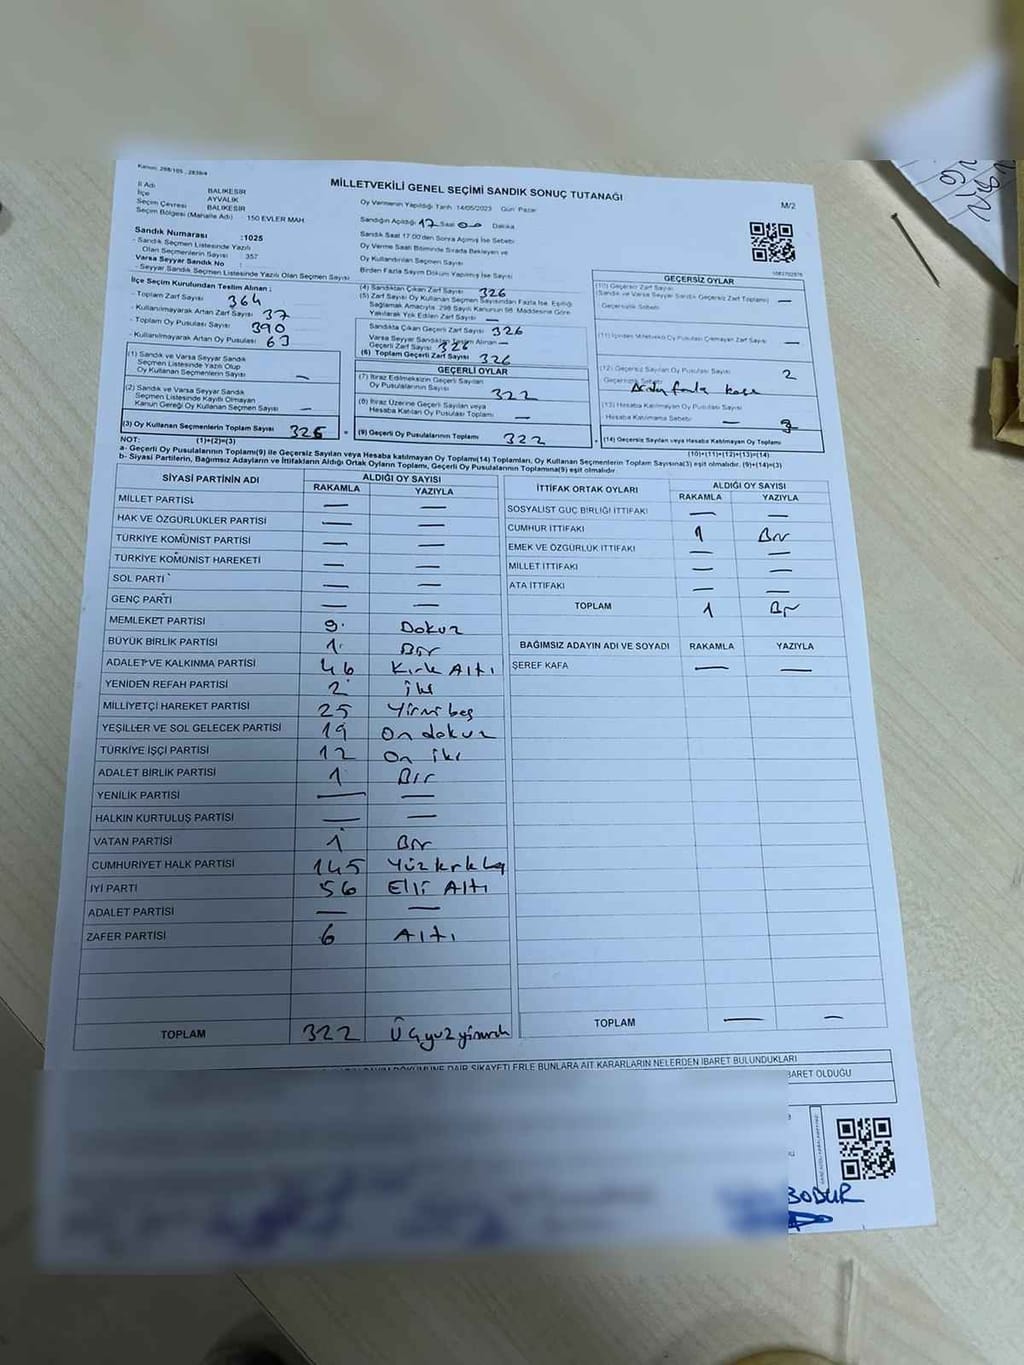 Kanun: 298/105 , 2839/4
MİLLETVEKİLİ GENEL SEÇİMİ SANDIK SONUÇ TUTANAĞI
M/2
İl Adı BALIKESİR
İlçe AYVALIK
Seçim Çevresi BALIKESİR
Seçim Bölgesi (Mahalle Adı) 150 EVLER MAH.
Sandık Numarası :1025
- Sandık Seçmen Listesinde Yazılı
Olan Seçmenlerin Sayısı 357
Varsa Seyyar Sandık No :
- Seyyar Sandık Seçmen Listesinde Yazılı Olan Seçmen Sayısı
Oy Vermenin Yapıldığı Tarih :14/05/2023 Gün: Pazar
Sandığın Açıldığı 17 Saat 00 Dakika
Sandık Saat 17:00'den Sonra Açılmış İse Sebebi
Oy Verme Saati Bitiminde Sırada Bekleyen ve
Oy Kullandırılan Seçmen Sayısı
Birden Fazla Sayım Döküm Yapılmış İse Sayısı
İlçe Seçim Kurulundan Teslim Alınan ;
- Toplam Zarf Sayısı 364
- Kullanılmayarak Artan Zarf Sayısı 37
- Toplam Oy Pusulası Sayısı 390
- Kullanılmayarak Artan Oy Pusulası 63
(1) Sandık ve Varsa Seyyar Sandık
Seçmen Listesinde Yazılı Olup
Oy Kullanan Seçmenlerin Sayısı —
(2) Sandık ve Varsa Seyyar Sandık
Seçmen Listesinde Kayıtlı Olmayan
Kanun Gereği Oy Kullanan Seçmen Sayısı —
(3) Oy Kullanan Seçmenlerin Toplam Sayısı 326
(4) Sandıktan Çıkan Zarf Sayısı 326
(5) Zarf Sayısı Oy Kullanan Seçmen Sayısından Fazla İse, Eşitliği
Sağlamak Amacıyla, 298 Sayılı Kanunun 98. Maddesine Göre
Yakılarak Yok Edilen Zarf Sayısı —
Sandıkta Çıkan Geçerli Zarf Sayısı 326
Varsa Seyyar Sandıktan Teslim Alınan —
Geçerli Zarf Sayısı 326
(6) Toplam Geçerli Zarf Sayısı 326
GEÇERLİ OYLAR
(7) İtiraz Edilmeksizin Geçerli Sayılan
Oy Pusulalarının Sayısı 322
(8) İtiraz Üzerine Geçerli Sayılan veya
Hesaba Katılan Oy Pusulası Toplamı —
(9) Geçerli Oy Pusulalarının Toplamı 322
GEÇERSİZ OYLAR
(10) Geçersiz Zarf Sayısı
(Sandık ve Varsa Seyyar Sandık Geçersiz Zarf Toplamı) —
Geçersizlik Sebebi:
(11) İçinden Milletvekili Oy Pusulası Çıkmayan Zarf Sayısı —
(12) Geçersiz Sayılan Oy Pusulası Sayısı 2
Geçersizlik Sebebi:
(13) Hesaba Katılmayan Oy Pusulası Sayısı
Hesaba Katılmama Sebebi: —
(14) Geçersiz Sayılan veya Hesaba Katılmayan Oy Toplamı
NOT: (1)+(2)=(3) (10)+(11)+(12)+(13)=(14)
a- Geçerli Oy Pusulalarının Toplamı(9) ile Geçersiz Sayılan veya Hesaba katılmayan Oy Toplamı(14) Toplamları, Oy Kullanan Seçmenlerin Toplam Sayısına(3) eşit olmalıdır. (9)+(14)=(3)
b- Siyasi Partilerin, Bağımsız Adayların ve İttifakların Aldığı Ortak Oyların Toplamı, Geçerli Oy Pusulalarının Toplamına(9) eşit olmalıdır.
SİYASİ PARTİNİN ADI ALDIĞI OY SAYISI
RAKAMLA YAZIYLA
MİLLET PARTİSİ — —
HAK VE ÖZGÜRLÜKLER PARTİSİ — —
TÜRKİYE KOMÜNİST PARTİSİ — —
TÜRKİYE KOMÜNİST HAREKETİ — —
SOL PARTİ — —
GENÇ PARTİ — —
MEMLEKET PARTİSİ 9 Dokuz
BÜYÜK BİRLİK PARTİSİ 1 Bir
ADALET VE KALKINMA PARTİSİ 46 Kırk Altı
YENİDEN REFAH PARTİSİ 2 İki
MİLLİYETÇİ HAREKET PARTİSİ 25 Yirmi beş
YEŞİLLER VE SOL GELECEK PARTİSİ 19 On dokuz
TÜRKİYE İŞÇİ PARTİSİ 12 On iki
ADALET BİRLİK PARTİSİ 1 Bir
YENİLİK PARTİSİ — —
HALKIN KURTULUŞ PARTİSİ — —
VATAN PARTİSİ 1 Bir
CUMHURİYET HALK PARTİSİ 145 Yüz kırk beş
İYİ PARTİ 56 Elli Altı
ADALET PARTİSİ — —
ZAFER PARTİSİ 6 Altı
TOPLAM 322
İTTİFAK ORTAK OYLARI ALDIĞI OY SAYISI
RAKAMLA YAZIYLA
SOSYALİST GÜÇ BİRLİĞİ İTTİFAKI — —
CUMHUR İTTİFAKI 1 Bir
EMEK VE ÖZGÜRLÜK İTTİFAKI — —
MİLLET İTTİFAKI — —
ATA İTTİFAKI — —
TOPLAM 1 Bir
BAĞIMSIZ ADAYIN ADI VE SOYADI RAKAMLA YAZIYLA
ŞEREF KAFA — —
TOPLAM — —
DÖKÜMÜNE DAİR ŞİKAYETLERLE BUNLARA AİT KARARLARIN NELERDEN İBARET BULUNDUKLARI
BARET OLDUĞU
BODUR